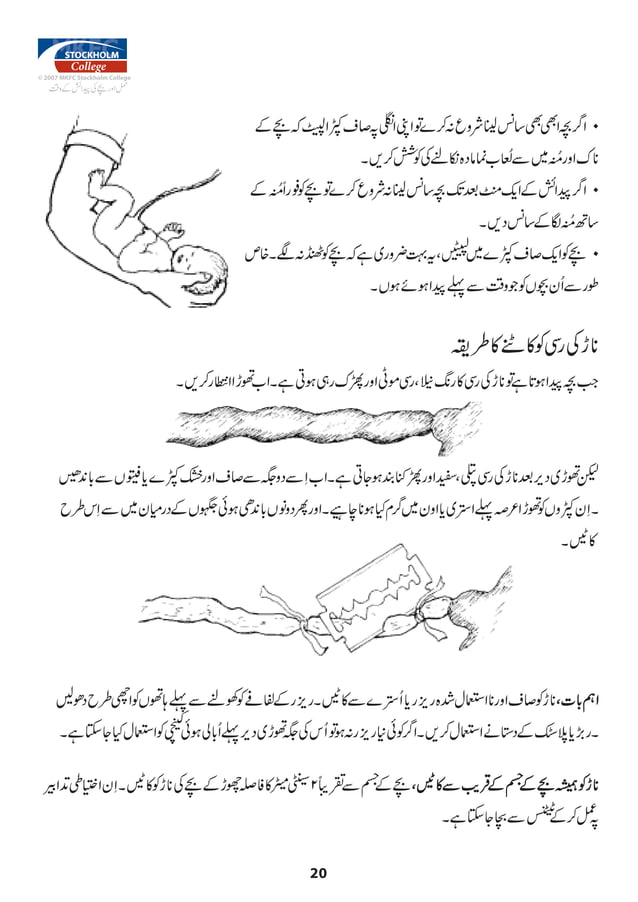 MKFC
STOCKHOLM
College
© 2007 MKFC Stockholm College
حمل اور بچے کی پیدائش کے وقت
• اگر بچہ ابھی بھی سانس لینا شروع نہ کرے تو اپنی انگلی پہ صاف کپڑا لپیٹ کہ بچے کے
ناک اور مُنہ میں سے لُعاب نما مادہ نکالنے کی کوشش کریں۔
• اگر پیدائش کے ایک منٹ بعد تک بچہ سانس لینا نہ شروع کرے تو بچے کو فوراً مُنہ کے
ساتھ مُنہ لگا کے سانس دیں۔
• بچے کو ایک صاف کپڑے میں لپیٹیں، یہ بہت ضروری ہے کہ بچے کو ٹھنڈ نہ لگے۔ خاص
طور سے اُن بچوں کو جو وقت سے پہلے پیدا ہوئے ہوں۔
ناڑ کی رسی کو کاٹنے کا طریقہ
جب بچہ پیدا ہوتا ہے تو ناڑ کی رسی کا رنگ نیلا، رسی موٹی اور پھڑک رہی ہوتی ہے۔ اب تھوڑا انتظار کریں۔
لیکن تھوڑی دیر بعد ناڑ کی رسی پتلی، سفید اور پھڑکنا بند ہو جاتی ہے۔ اب اِسے دو جگہ سے صاف اور خشک کپڑے یا فیتوں سے باندھیں
۔ اِن کپڑوں کو تھوڑا عرصہ پہلے استری یا اون میں گرم کیا ہونا چاہیے۔ اور پھر دونوں باندھی ہوئی جگہوں کے درمیان میں سے اِس طرح
کاٹیں۔
اہم بات، ناڑ کو صاف اور نا استعمال شدہ ریزر یا اُسترے سے کاٹیں۔ ریزر کے لفافے کو کھولنے سے پہلے ہاتھوں کو اچھی طرح دھولیں
۔ ربڑ یا پلاسٹک کے دستانے استعمال کریں۔ اگر کوئی نیا ریزر نہ ہو تو اُس کی جگہ تھوڑی دیر پہلے اُبالی ہوئی کینچی کو استعمال کیا جا سکتا ہے۔
ناڑ کو ہمیشہ بچے کے جسم کے قریب سے کاٹیں، بچے کے جسم سے تقریباً ۲ سینٹی میٹر کا فاصلہ چھوڑ کے بچے کی ناڑ کو کاٹیں۔ اِن اختیاطی تدابیر
پہ عمل کر کے ٹیٹنس سے بچا جا سکتا ہے۔
20